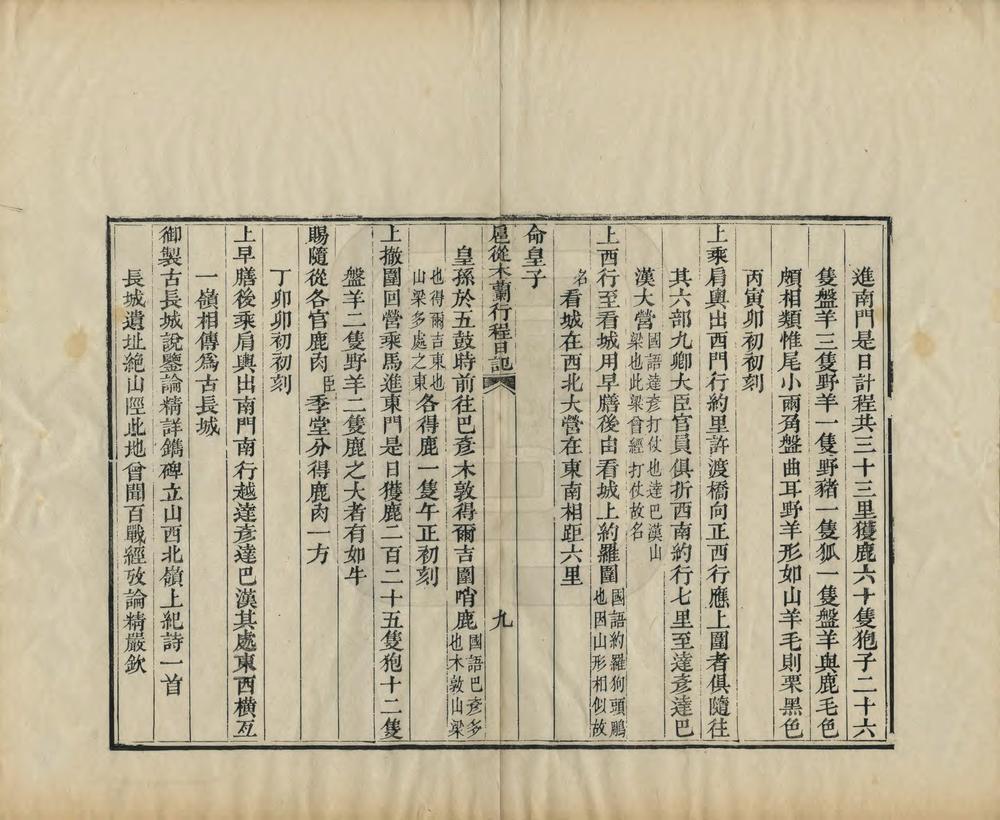 進南門是日計程共三十三里獲鹿六十隻狍子二十六
隻盤羊三隻野羊一隻野豬一隻狐一隻盤羊與鹿毛色
頗相類惟尾小兩角盤曲耳野羊形如山羊毛則栗黑色
丙寅卯初初刻
上乘肩輿出西門行約里許渡橋向正西行應上圍者俱隨往
其六部九卿大臣官員俱折西南約行七里至達彥達巴
漢大營國語達彥打仗也達巴漢山
梁也此梁曾經打仗故名
上西行至看城用早膳後由看城上約羅圍國語約羅狗頭鵰
也因山形相似故
名看城在西北大營在東南相距六里
命皇子
扈從木蘭行程日記 九
皇孫於五鼓時前往巴彥木敦得爾吉圍哨鹿國語巴彥多
也木敦山梁
也得爾吉東也
山梁多處之東各得鹿一隻午正初刻
上撤圍回營乘馬進東門是日獲鹿二百二十五隻狍十二隻
盤羊二隻野羊二隻鹿之大者有如牛
賜隨從各官鹿肉臣季堂分得鹿肉一方
丁卯卯初初刻
上早膳後乘肩輿出南門南行越達彥達巴漢其處東西橫亙
一嶺相傳為古長城
御製古長城說鑒論精詳鐫碑立山西北嶺上紀詩一首
長城遺址絶山陘此地曾聞百戰經攷論精嚴欽